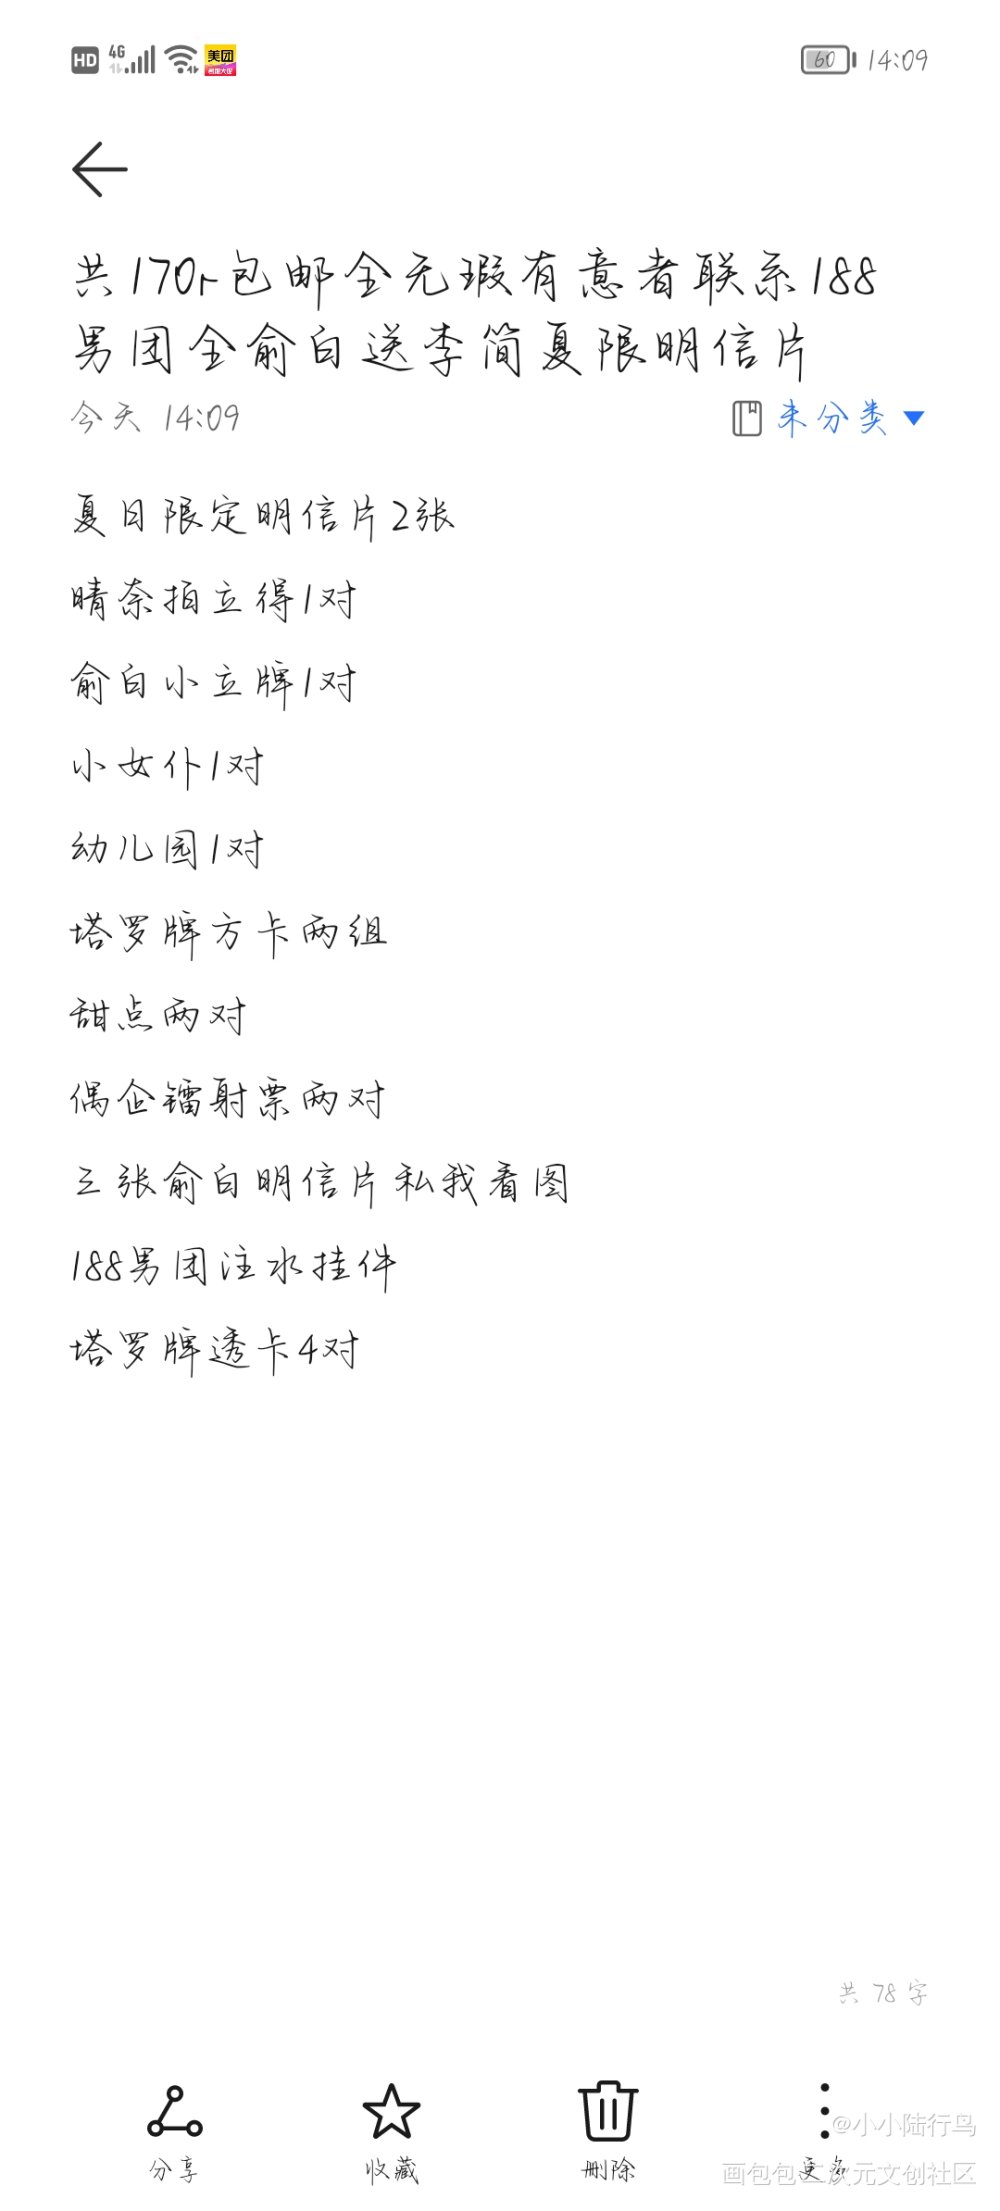 HD 4G 美团 60 14:09
共170r包邮全无瑕有意者联系188
男团全俞白送李简夏限明信片
今天 14:09 未分类
夏日限定明信片2张
晴奈拍立得1对
俞白小立牌1对
小女仆1对
幼儿园1对
塔罗牌方卡两组
甜点两对
偶企镭射票两对
三张俞白明信片私我看图
188男团注水挂件
塔罗牌透卡4对
共 78 字
分享 收藏 删除 更多
@小小陆行鸟
画包包二次元文创社区